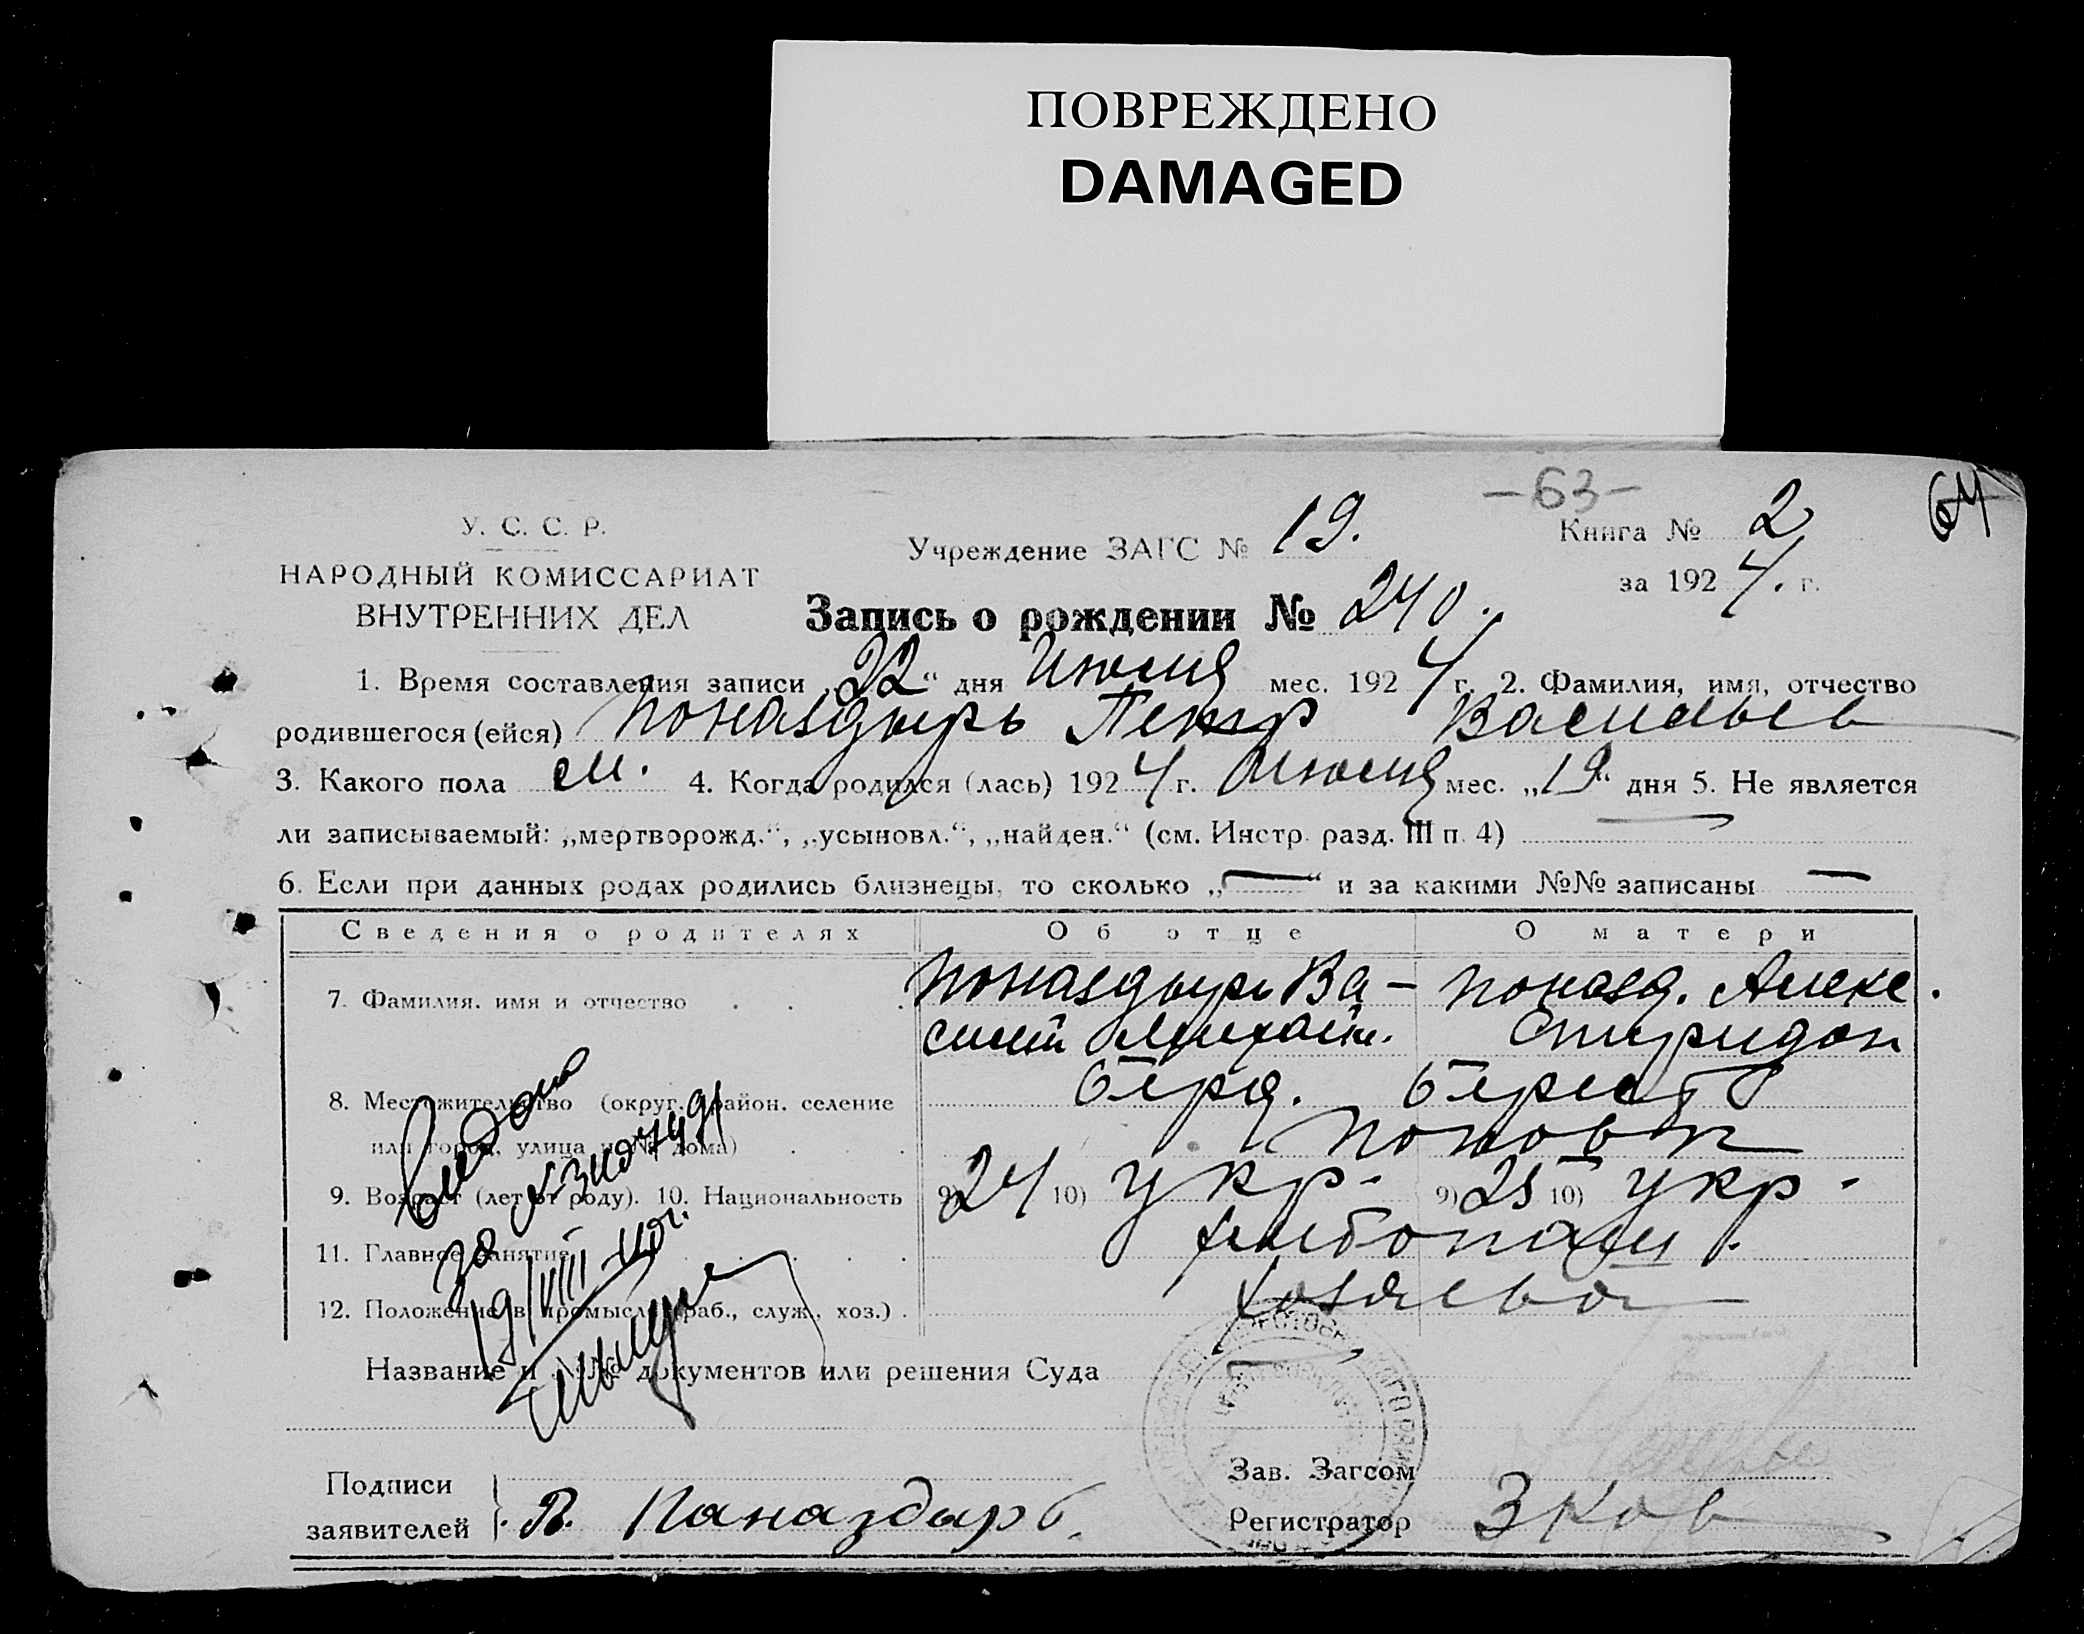 ПОВРЕЖДЕНО
DAMAGED
-63-
64
У. С. С. Р.
НАРОДНЫЙ КОМИССАРИАТ
ВНУТРЕННИХ ДЕЛ
Учреждение ЗАГС № 19.
Книга № 2
за 1924. г.
Запись о рождении № 240.
1. Время составления записи „22“ дня Июля мес. 1924 г. 2. Фамилия, имя, отчество
родившегося (ейся) Поназдырь Петр Васильев
3. Какого пола м. 4. Когда родился (лась) 1924 г. Июля мес. „19“ дня 5. Не является
ли записываемый: „мертворожд.“, „усыновл.“, „найден.“ (см. Инстр. разд. III п. 4)
6. Если при данных родах родились близнецы, то сколько „—“ и за какими №№ записаны —
Сведения о родителях Об отце О матери
7. Фамилия, имя и отчество Поназдырь Ва- Поназд. Алекс.
силий Михайл. Спиридон
8. Местожительство (округ, район, селение Берд.
или город, улица и № дома)
9. Возраст (лет от роду). 10. Национальность 9) 24 10) укр. 9) 25 10) укр.
11. Главное занятие хлебопаш.
12. Положение в промысле (раб., служ., хоз.) Хозяева
Название и №№ документов или решения Суда
19/VIII-40г.
Подписи
заявителей В. Паназдырь.
Зав. Загсом
Регистратор